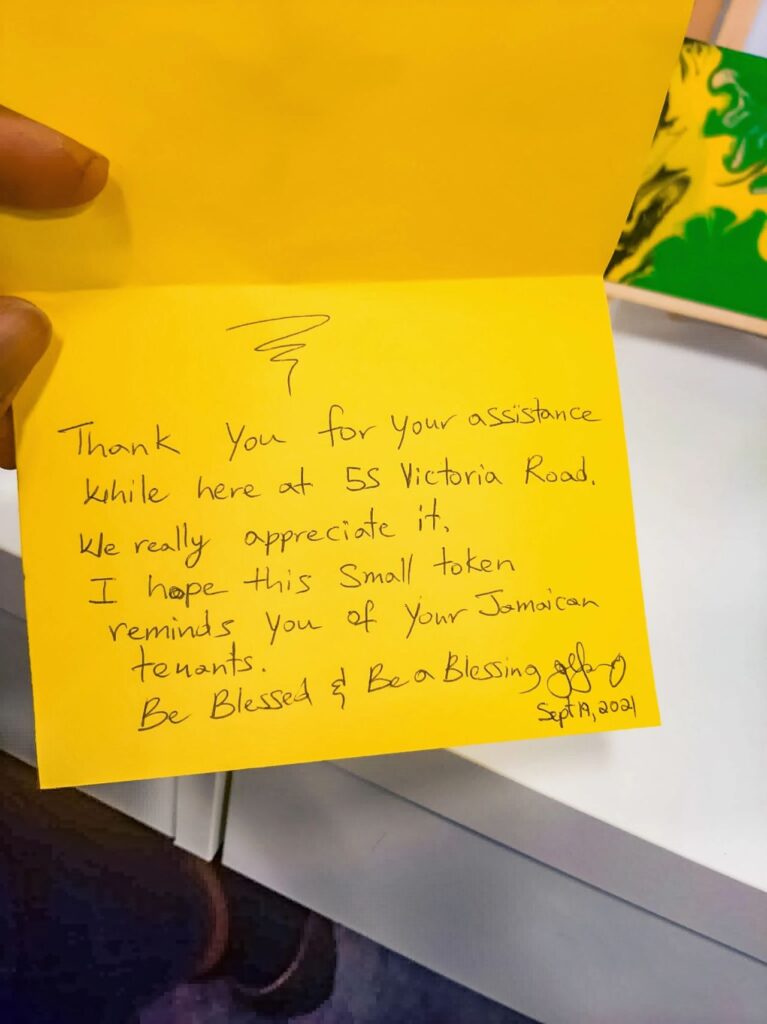 Thank you for your assistance
While here at 55 Victoria Road.
We really appreciate it.
I hope this small token
reminds you of your Jamaican
tenants.
Be Blessed & Be a Blessing
Sept 19, 2021